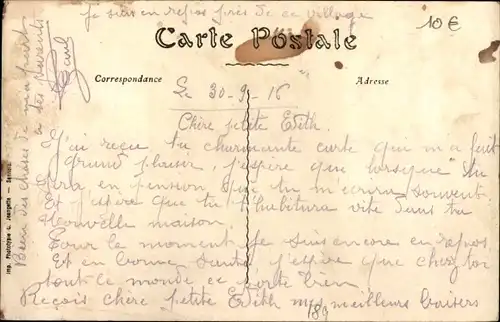 Je suis en repos près de ce village
10€
Carte Postale
Correspondance
Adresse
Le 30-9-16
Chère petite Edith.
J'ai reçu ta charmante carte qui m'a fait
grand plaisir, j'espère que lorsque tu
sera en pension que tu m'ecrira souvent.
Et j'espère que tu t'habitura vite dans ta
Nouvelle maison.
Pour le moment je suis encore en repos
Et en bonne santé j'espère que chez toi
tout le monde se porte bien
Reçois chère petite Edith mes meilleurs baisers
189
Bien des choses de ma part
a tes parents
Imp. Phototypie